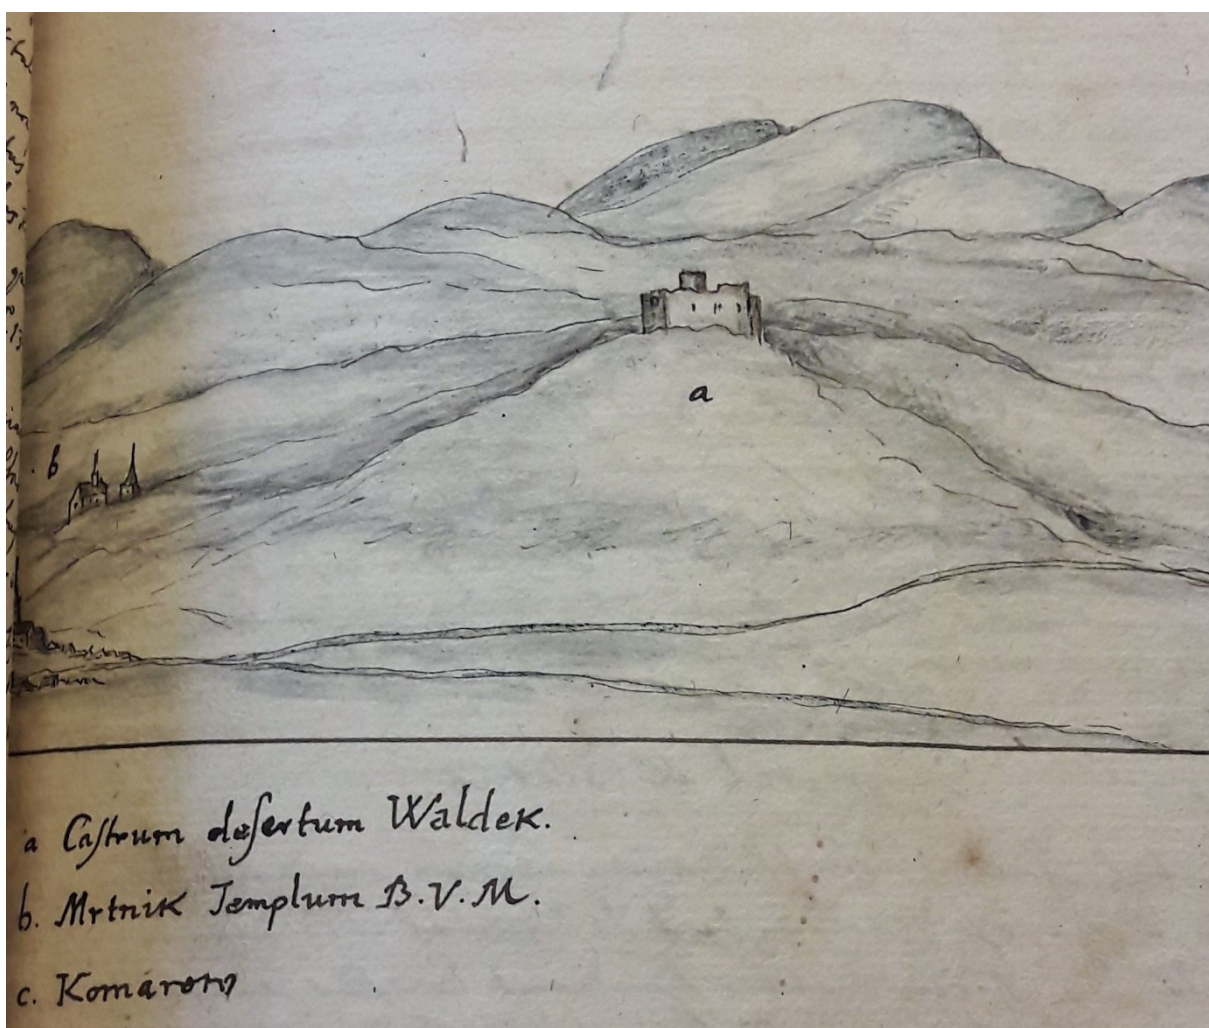 b
a
a Caſtrum deſertum Waldek.
b. Mrtnik Templum B.V.M.
c. Komarow